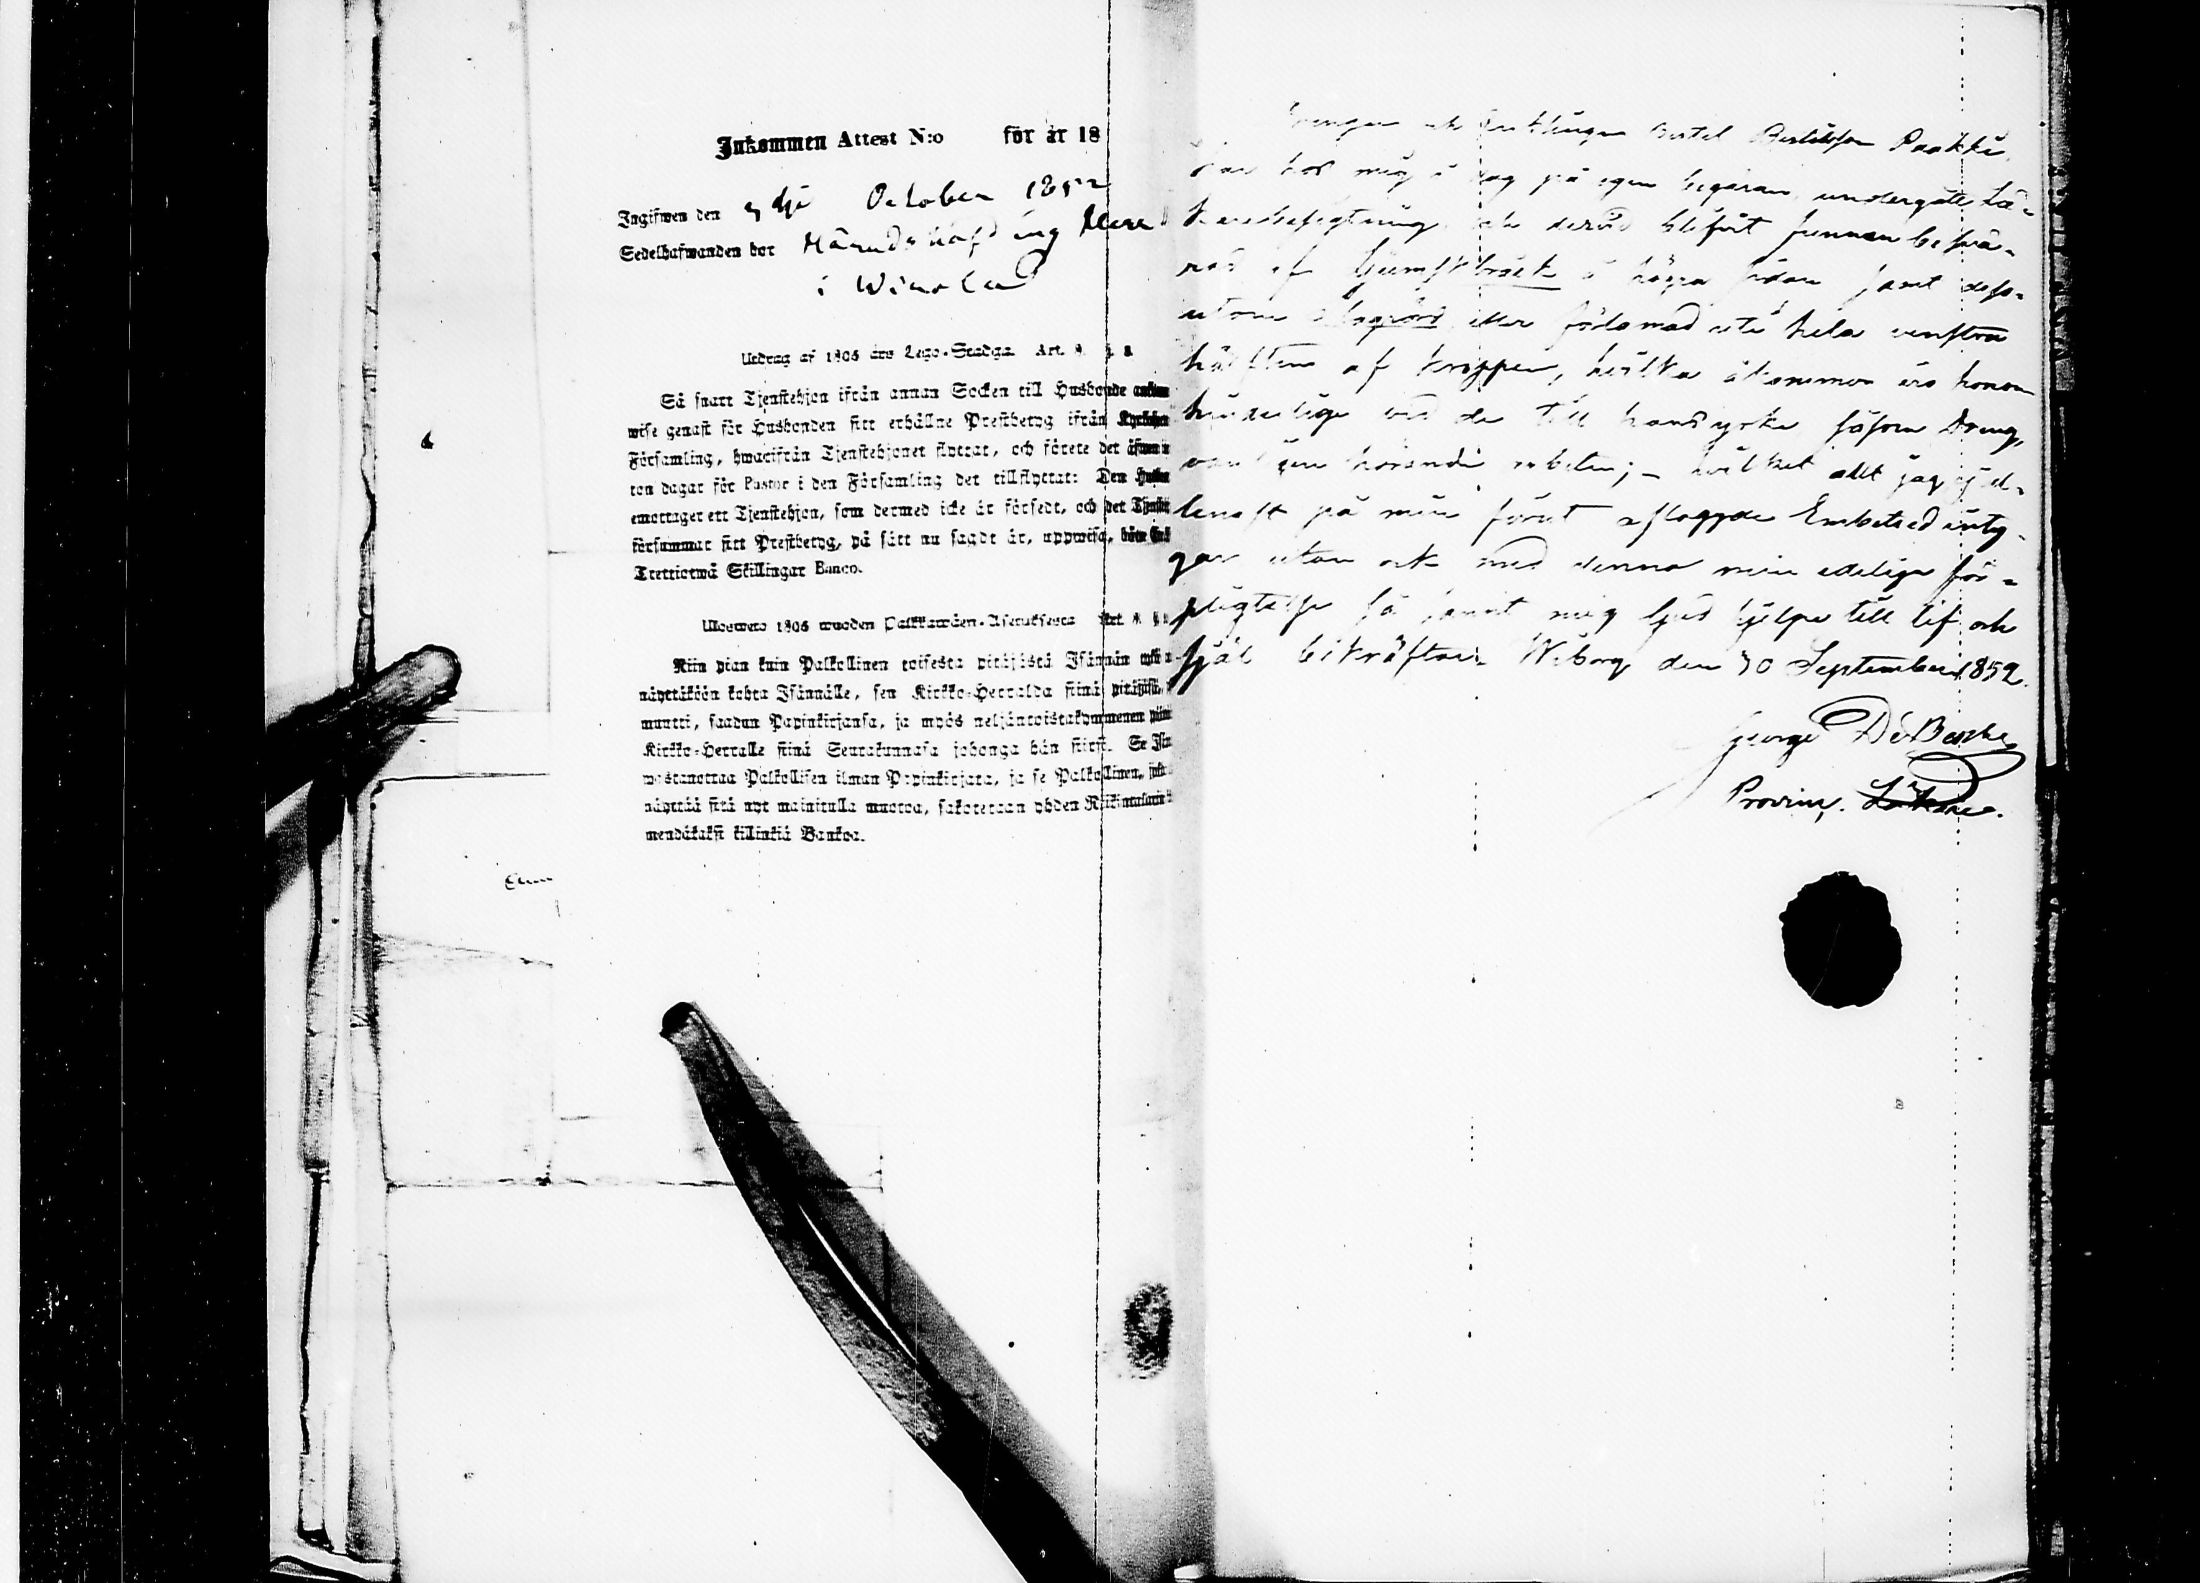 Inkommen Attest N:o för år 18
Ingifwen den 5 dje October 1852
Sedelhafwanden bor Häradshöfding
i
Utdrag af 1805 års Lego-Stadga. Art. §. 8
Så snart Tjenstehjon ifrån annan Socken till Husbonde
wise genast för Husbonden sitt erhållne Prestbetyg ifrån
Församling, hwarifrån Tjenstehjonet flyttat, och förete det
ton dagar för Pastor i den Församling det tillflyttat: Den
emottager ett Tjenstehjon, som dermed icke är försedt, och det
försummar sitt Prestbetyg, på sätt nu sagdt är, uppwisa, böte
Trettiotwå Skillingar Banco.
Ulosweto 1805 wuoden Palkkawäen-Asetuksesta
Niin pian kuin Palkollinen toisesta pitäjästä Isännän
näyttäköön kohta Isännälle, sen Kirkko-Herralda siinä pitäjäsä,
muutti, saadun Papinkirjansa, ja myös neljäntoistakymmenen
Kirkko-Herralle siinä Seurakunnasa johonga hän siirsi. Se
wastanottaa Palkollisen ilman Papinkirjata, ja se Palkollinen,
näyttää sitä nyt mainitulla muotoa, sakotetaan yhden
mendäkaksi killinkiä Bankoa.
Drengen och Bertel Bertilsson Paakki,
har hos mig i dag på egen begäran, undergått Lä-
karebesigtning, och dervid blifvit funnen besvä-
rad af ljumskbråck å högra sidan samt dess-
utom slagrörd eller förlamad uti hela venstra
hälften af kroppen, hvilka åkommor äro honom
hinderlige vid de till handyrke såsom Dreng,
hörande arbeten; – hvilket allt jag ej al-
lenast på min förut aflaggda Embetsed inty-
gar utan ock med denna min edeliga för-
pligtelse så sannt mig Gud hjelpe till lif och
själ bekräftar. Wiborg den 30 September 1852.
George De Besche
Provinc. Läkare.